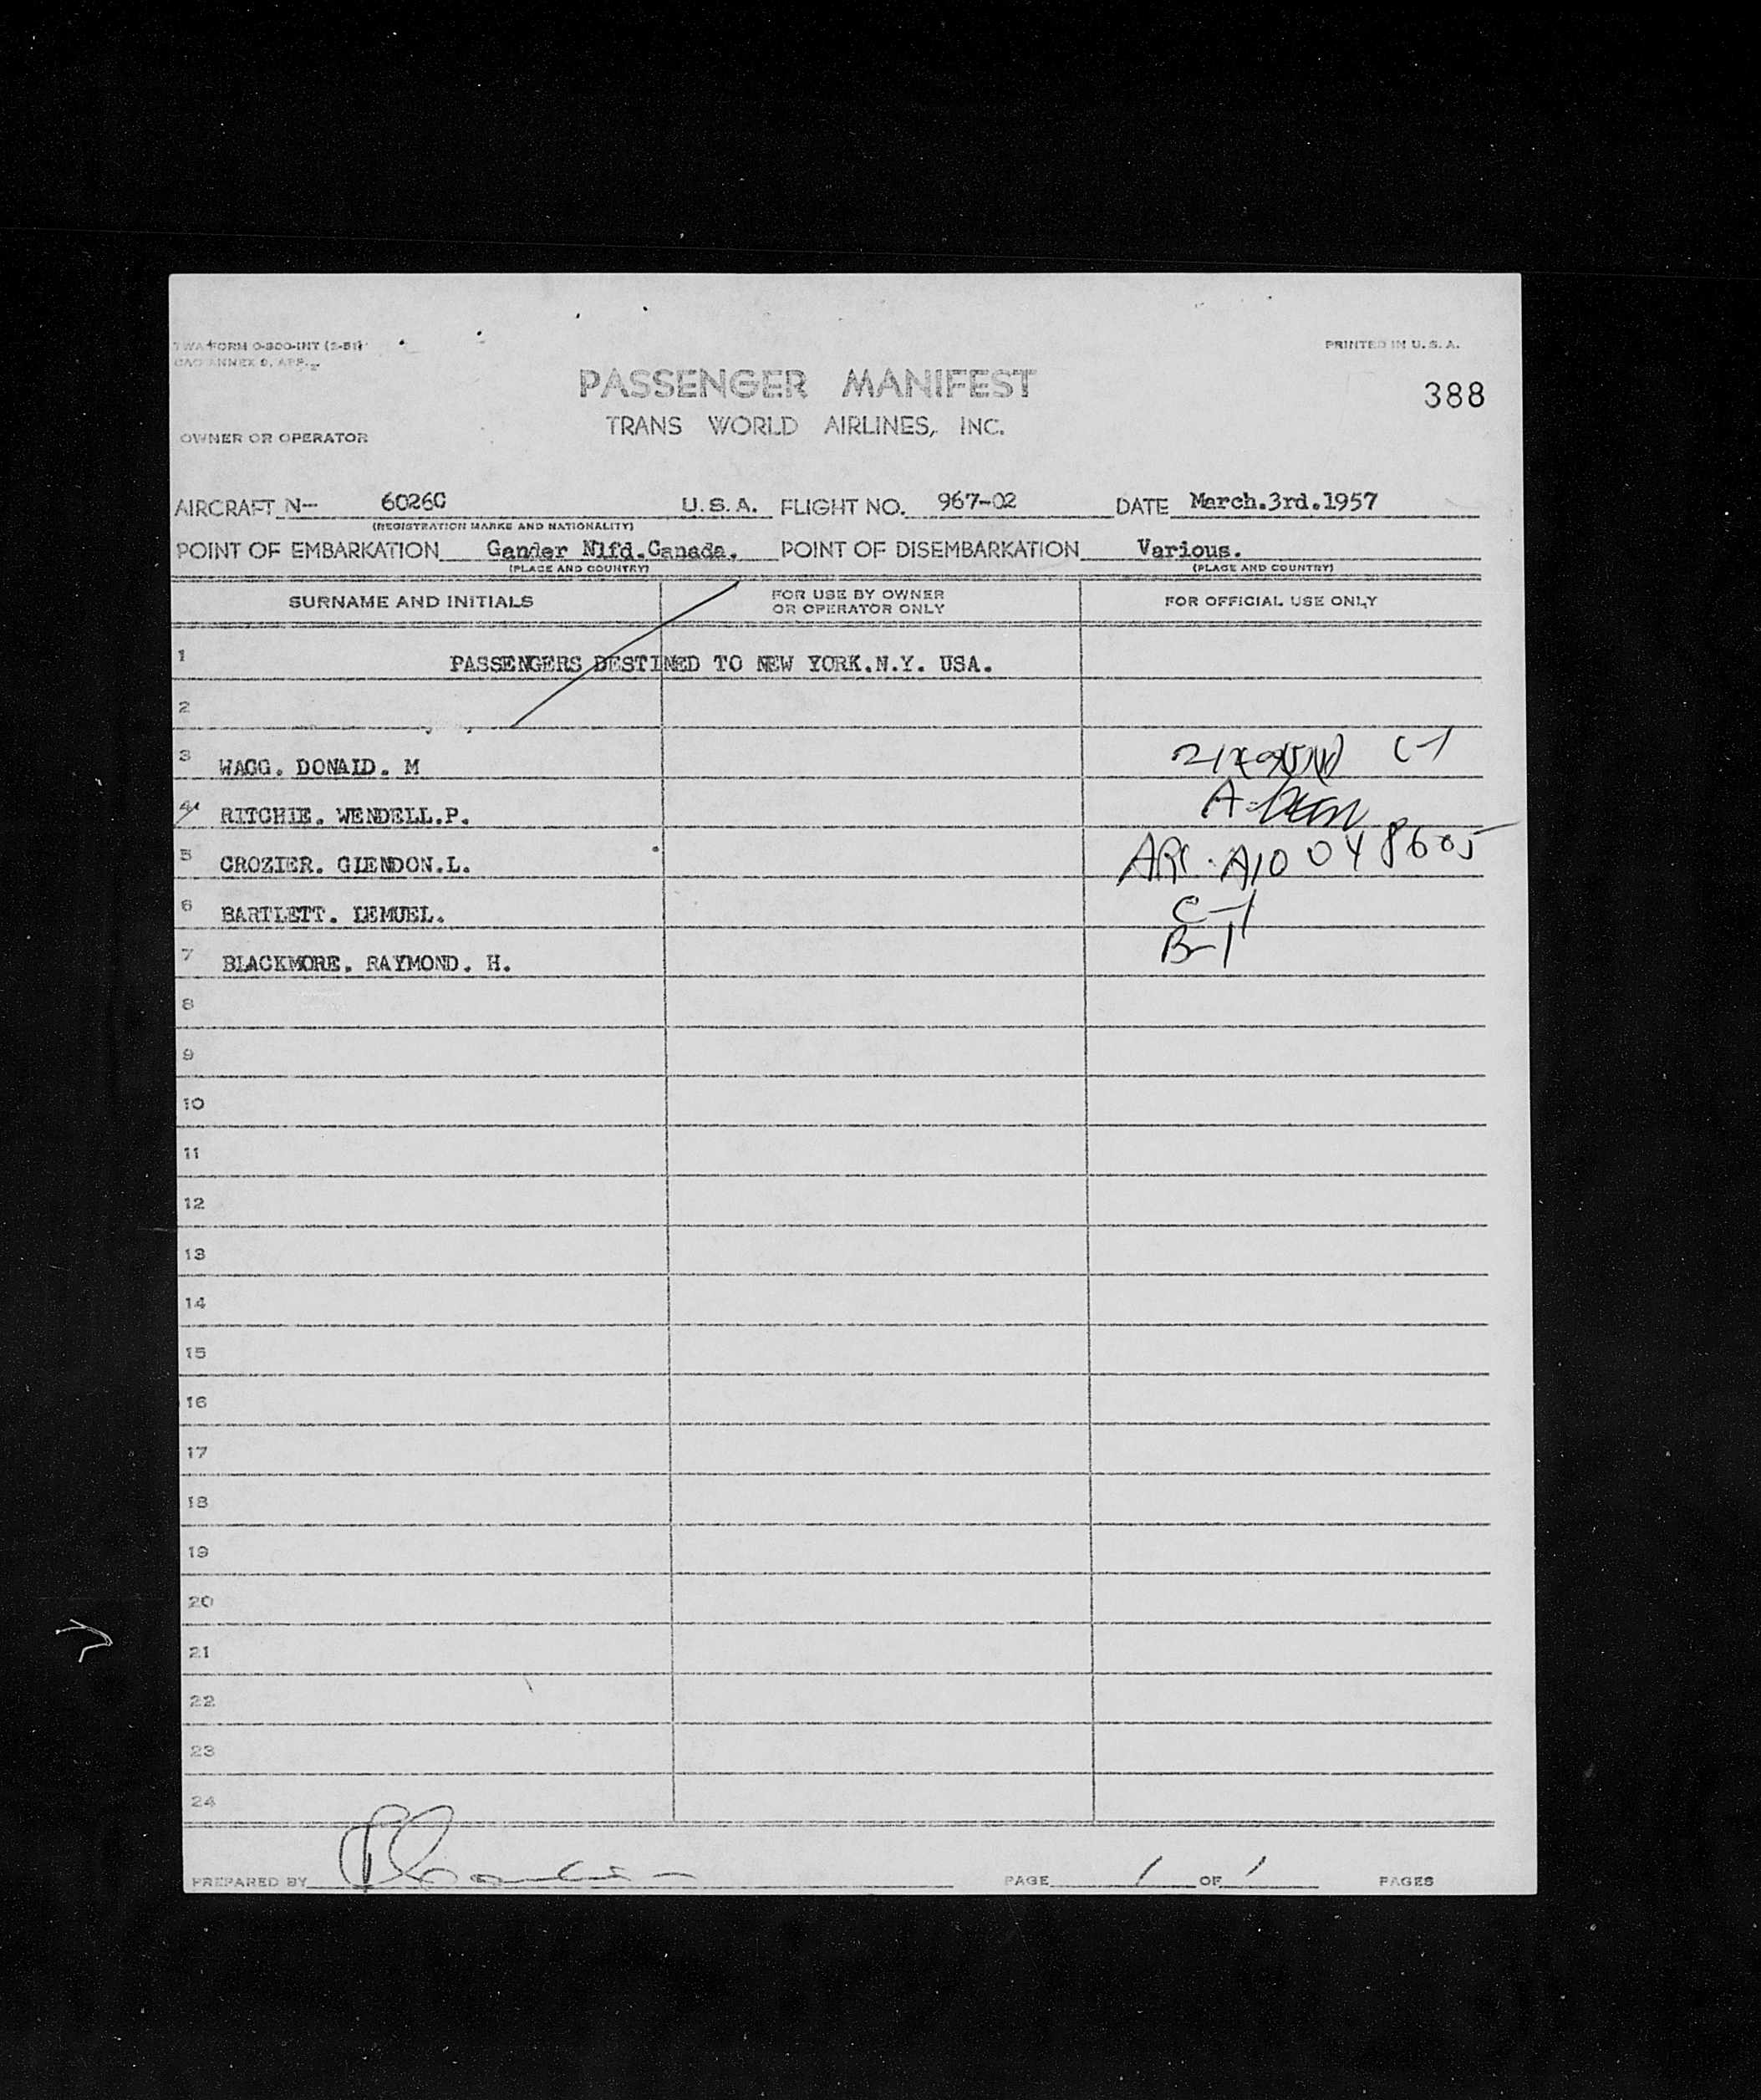 TWA FORM O-800-INT (2-51)
PRINTED IN U. S. A.
ICAO ANNEX 9, APP.
PASSENGER MANIFEST
388
TRANS WORLD AIRLINES, INC.
OWNER OR OPERATOR
AIRCRAFT N-- 6026C U.S.A. FLIGHT NO. 967-02 DATE March.3rd.1957
(REGISTRATION MARKS AND NATIONALITY)
POINT OF EMBARKATION Gander Nlfd.Canada. POINT OF DISEMBARKATION Various.
(PLACE AND COUNTRY) (PLACE AND COUNTRY)
SURNAME AND INITIALS FOR USE BY OWNER OR OPERATOR ONLY FOR OFFICIAL USE ONLY
1 PASSENGERS DESTINED TO NEW YORK.N.Y. USA.
2
3 WAGG. DONALD. M C-1
4 RITCHIE. WENDELL.P. A-
5 CROZIER. GLENDON.L. ARC. A10 048605
6 BARTLETT. LEMUEL. C-1
7 BLACKMORE. RAYMOND. H. B-1
8
9
10
11
12
13
14
15
16
17
18
19
20
21
22
23
24
PREPARED BY PAGE 1 OF 1 PAGES